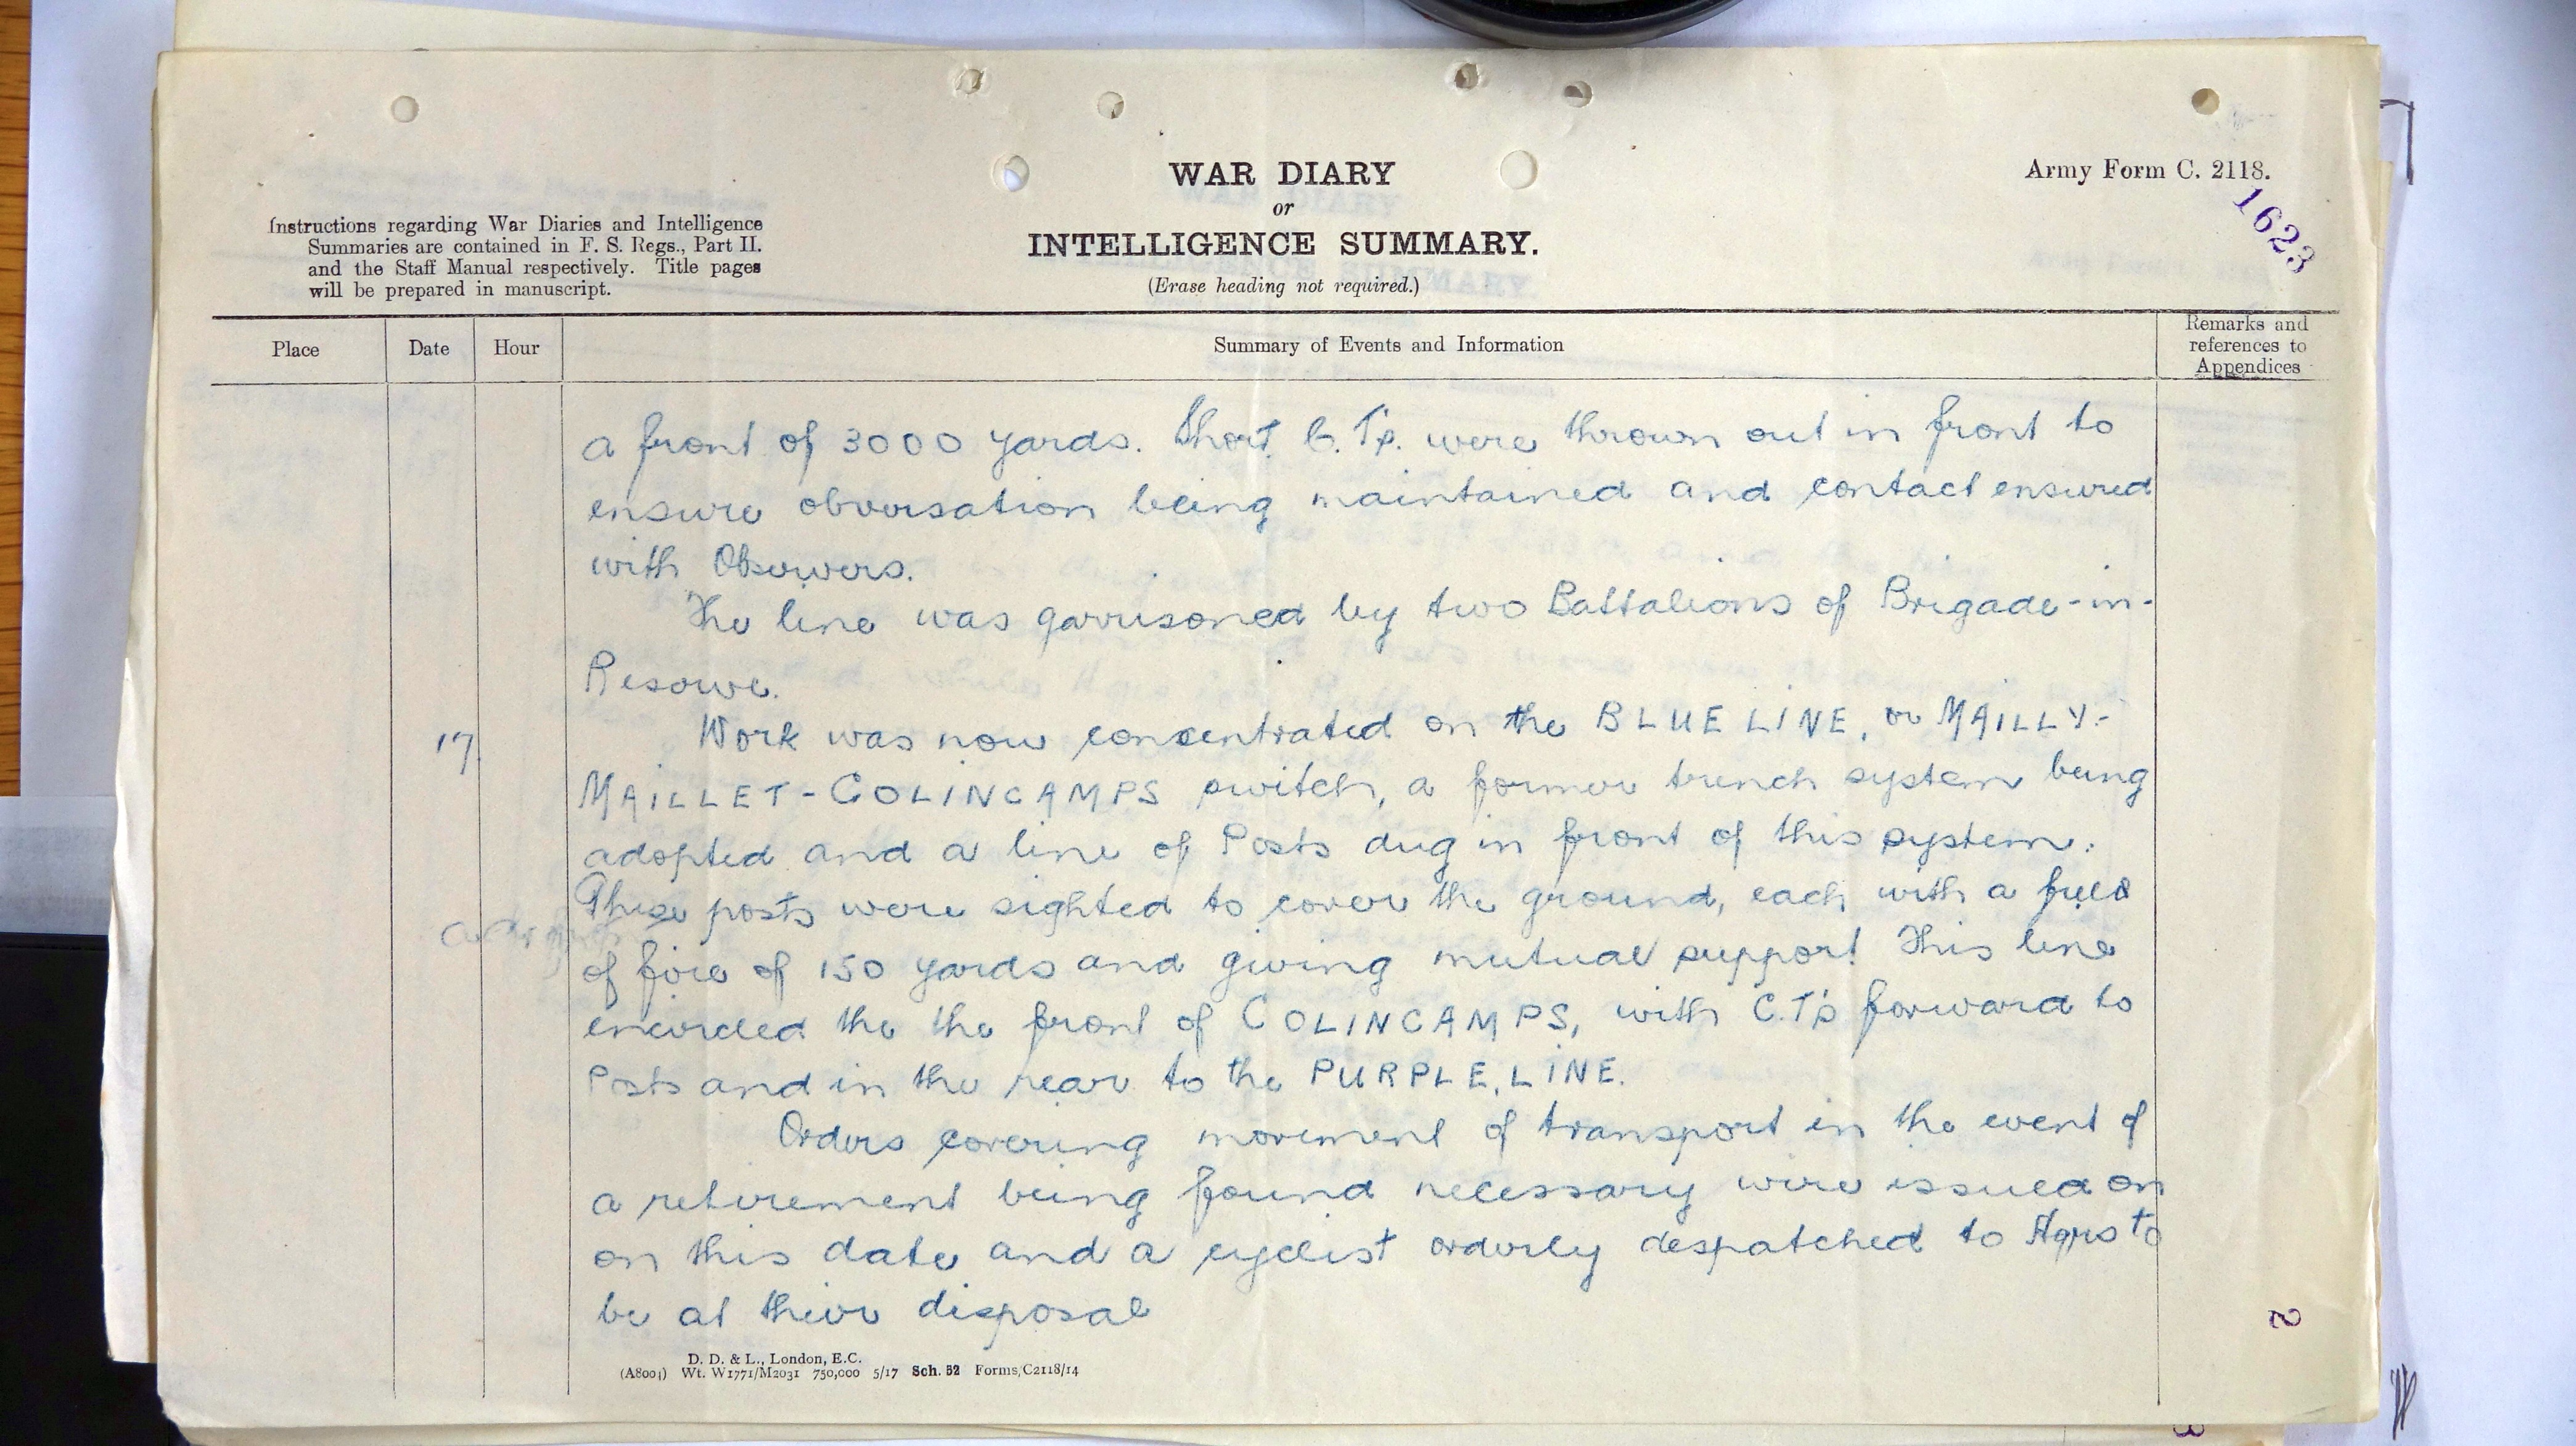 WAR DIARY
or
INTELLIGENCE SUMMARY.
(Erase heading not required.)
Army Form C. 2118.
1623
Instructions regarding War Diaries and Intelligence
Summaries are contained in F. S. Regs., Part II.
and the Staff Manual respectively. Title pages
will be prepared in manuscript.
Place
Date
Hour
Summary of Events and Information
Remarks and
references to
Appendices
a front of 3000 yards. Short C.Ts. were thrown out in front to
ensure obversation being maintained and contact ensured
with Observers.
The line was garrisoned by two Battalions of Brigade-in-
Reserve.
17 Work was now concentrated on the BLUE LINE, or MAILLY-
MAILLET-COLINCAMPS switch, a former trench system being
adopted and a line of Posts dug in front of this system.
These posts were sighted to cover the ground, each with a field
of fire of 150 yards and giving mutual support. This line
encircled the the front of COLINCAMPS, with C.T's forward to
Posts and in the rear to the PURPLE LINE.
Orders covering movement of transport in the event of
a retirement being found necessary were issued on
on this date and a cyclist orderly despatched to Hqrs to
be at their disposal
D. D. & L., London, E.C.
(A8004) Wt. W1771/M2031 750,000 5/17 Sch. 52 Forms/C2118/14
2
3